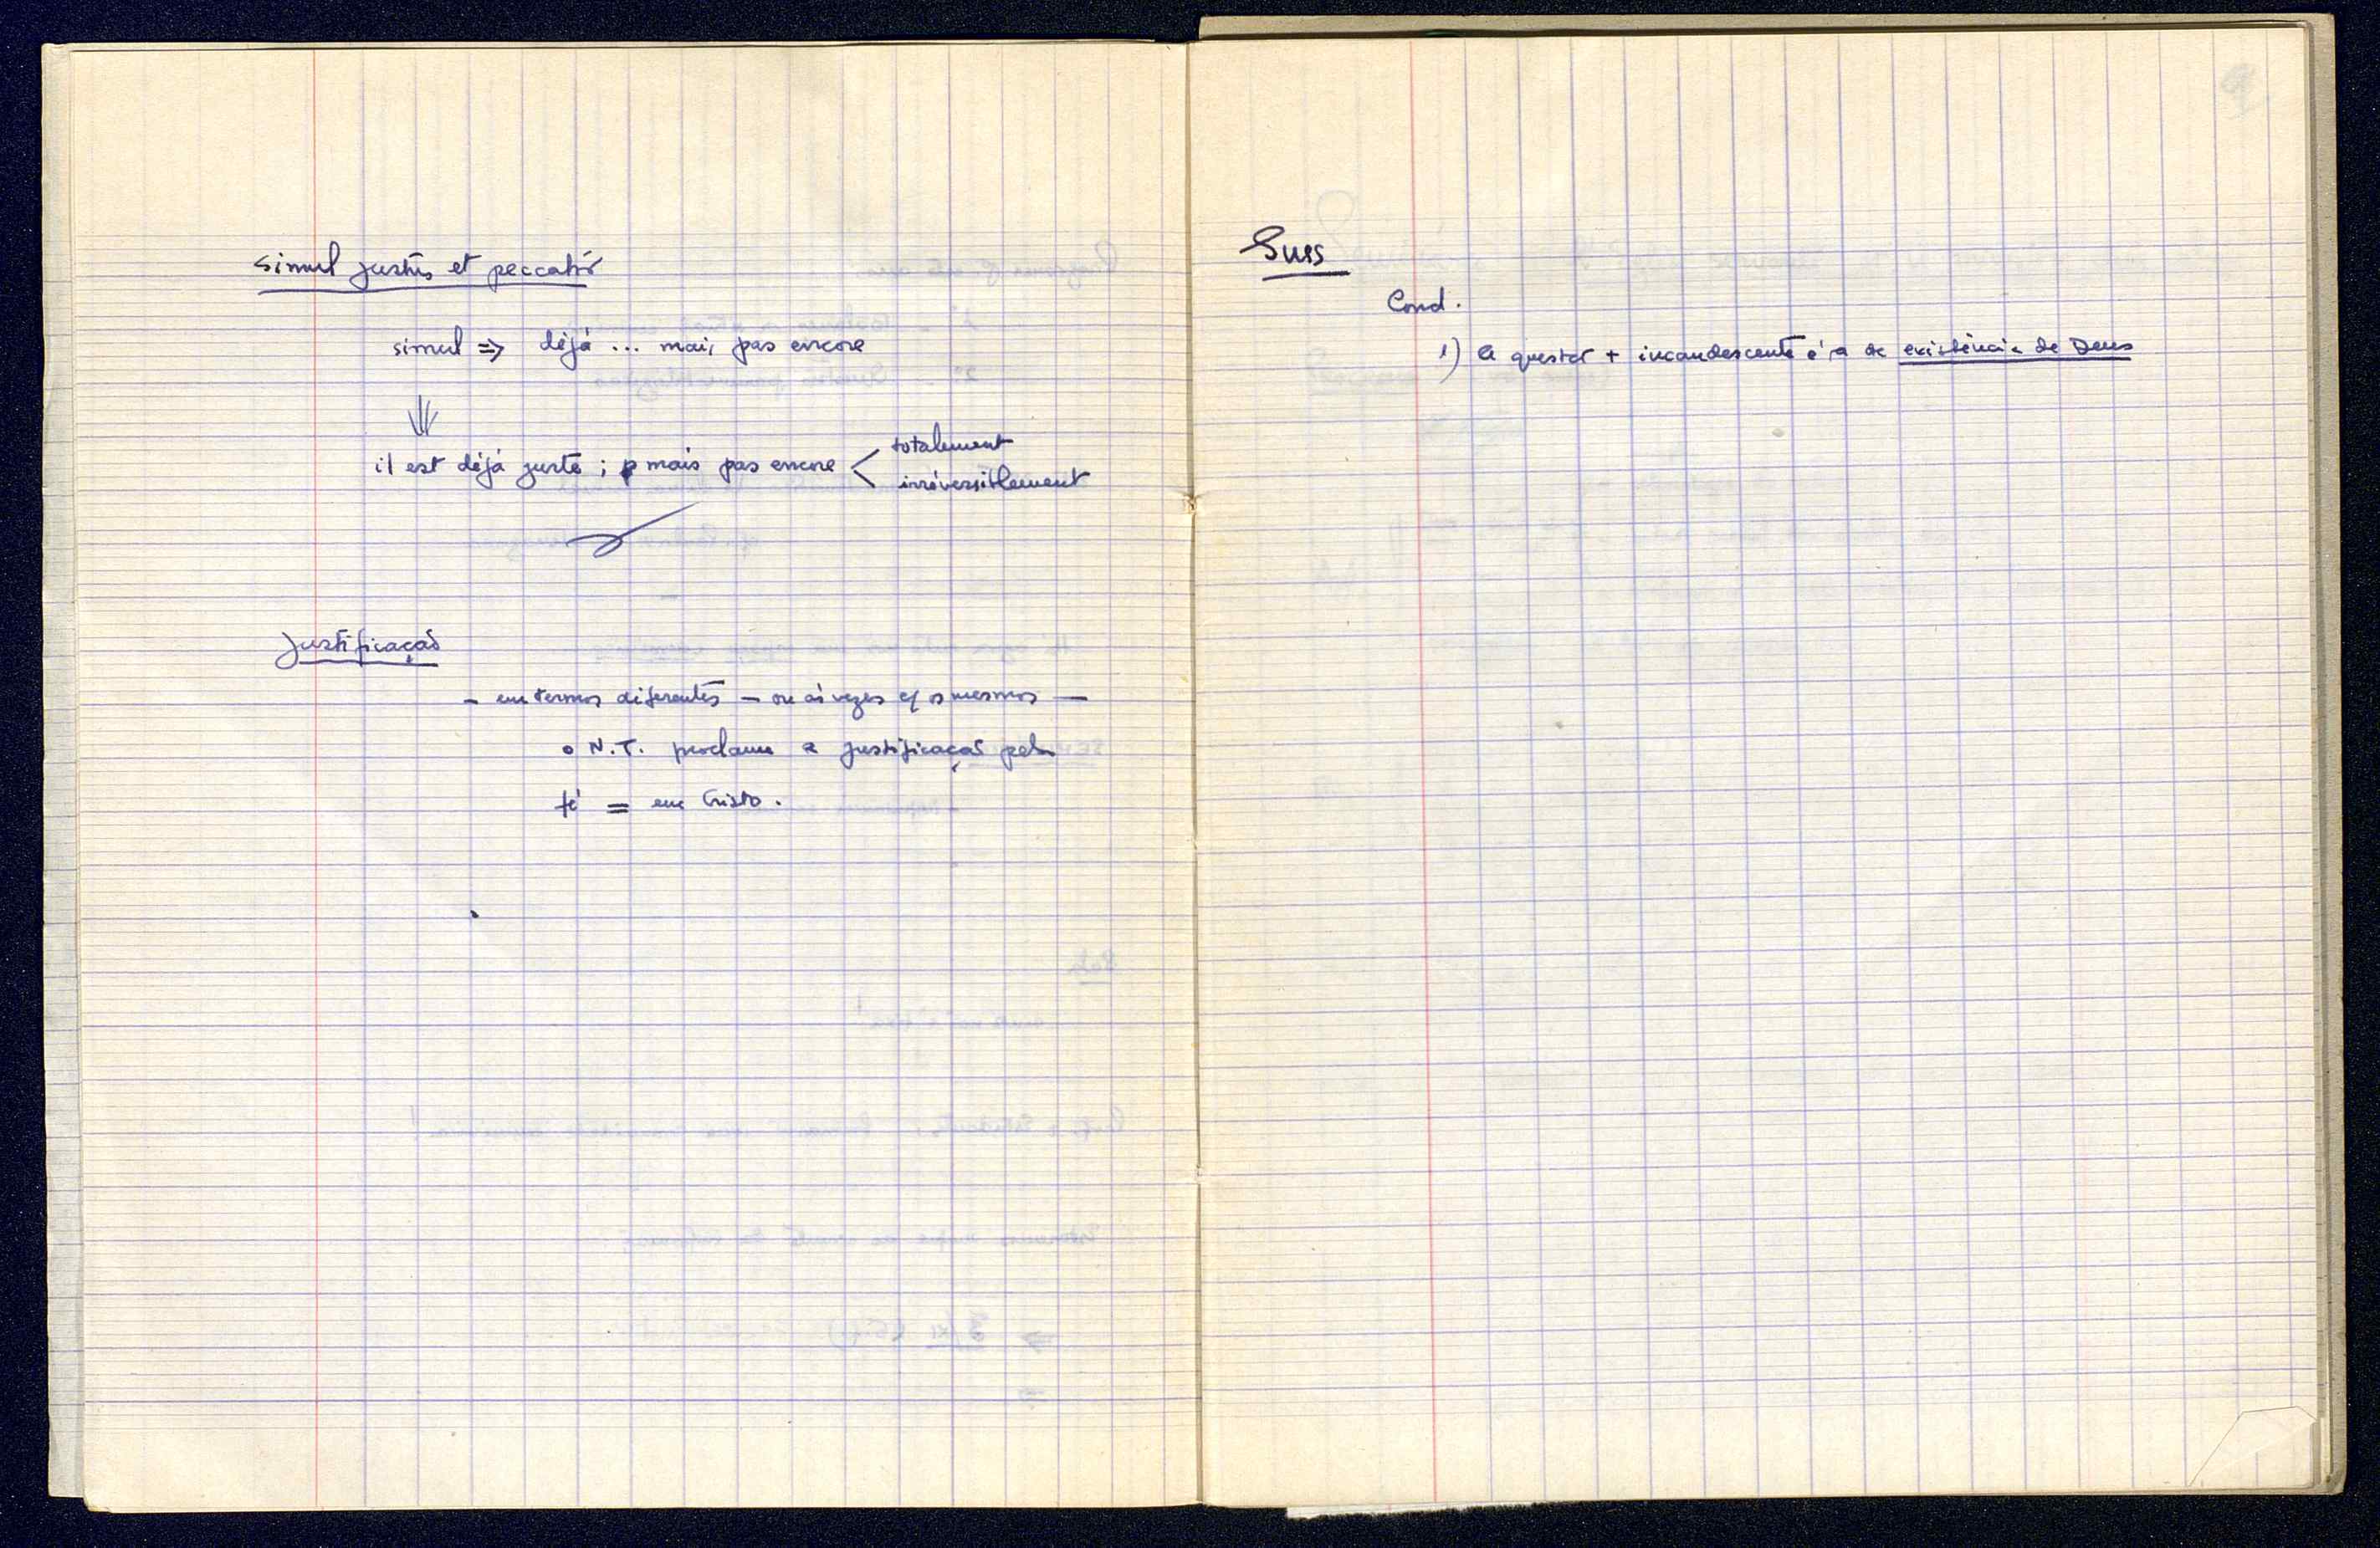 simul justus et peccator
simul => déjà ... mais pas encore
il est déjà juste ; mais pas encore < totalement
irréversiblement
Justificação
- em termos diferentes - ou às vezes c/ os mesmos -
o N.T. proclama a justificação pela
fé = em Cristo.
Suss
Cond.
1) a questão + incandescente é a da existência de Deus